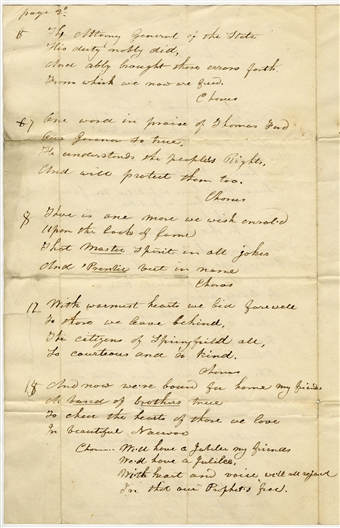 page 2d
6 The Attorney General of the State
His duty nobly did,
And ably brought those errors forth
From which we now are freed.
Chorus
7 One word in praise of Thomas Ford
Our Governor so true,
He understands the people's Rights,
And will protect them too.
Chorus
8 There is one more we wish enrol'd
Upon the book of fame
That Master spirit in all jokes
And "Prentice but in name
Chorus
17 With warmest hearts we bid farewell
To those we leave behind,
The citizens of Springfield all,
So courteous and so kind.
Chorus
18 And now we're bound for home my friends
A band of brothers true
To cheer the hearts of those we love
In beautiful Nauvoo
Chorus We'll have a Jubilee my friends
We'll have a Jubilee,
With heart and voice we'll all
In that our Prophet's free.